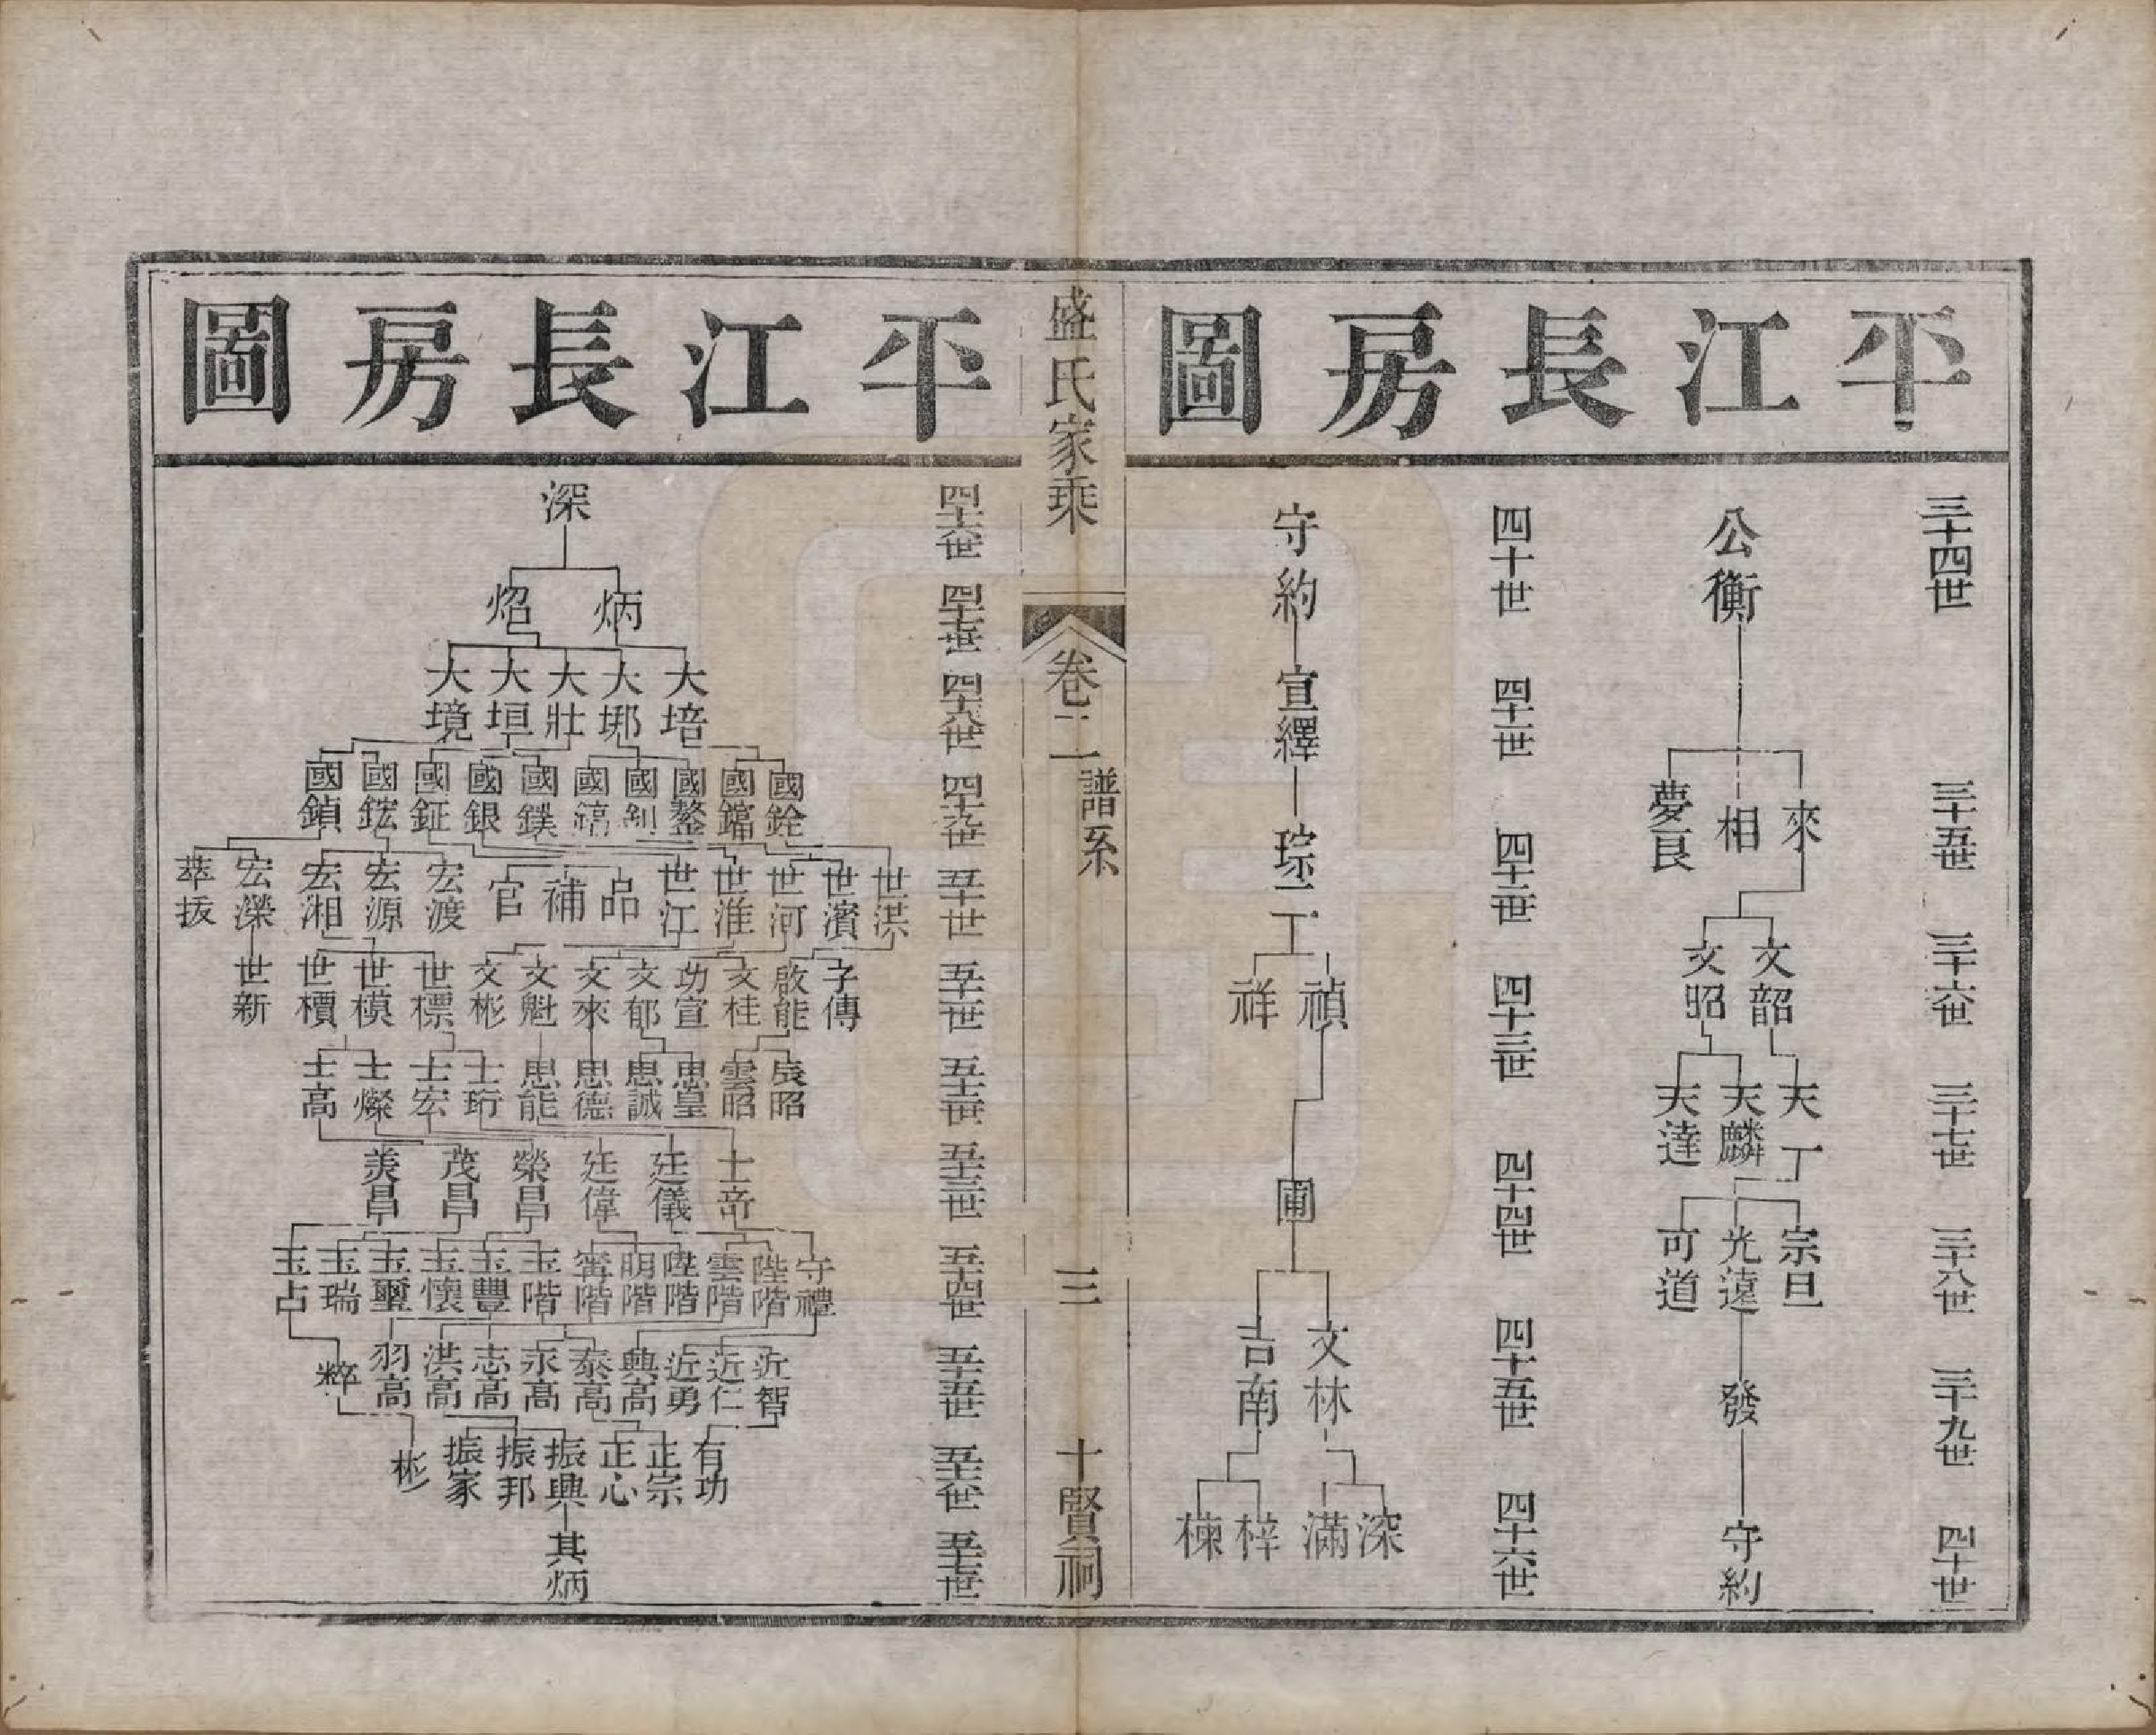 平江長房圖
三十四世
公衡
三十五世
來
相
夢良
三十六世
文韶
文昭
三十七世
天工
天麟
天達
三十八世
宗旦
光遠
可道
三十九世
發
四十世
守約
四十世
守約
四十一世
宣繹
四十二世
琮
四十三世
禎
祥
四十四世
圃
四十五世
文林
吉南
四十六世
深
滿
梓
楝
盛氏家乘
卷二
譜系
三
十賢祠
平江長房圖
四十六世
深
四十七世
炳
炤
四十八世
大培
大塨
大壯
大垣
大境
四十九世
國銓
國鐺
國鏊
國釗
國鎬
國鏷
國銀
國鉦
國鋐
國鎮
五十世
世洪
世濱
世河
世淮
世江
品
補
官
宏渡
宏源
宏湘
宏濚
萃拔
五十一世
子傳
啟能
文桂
功宣
文郁
文來
文魁
文彬
世標
世模
世檟
世新
五十二世
辰昭
雲昭
思皇
思誠
思德
思能
士珩
士宏
士燦
士高
五十三世
士奇
廷儀
廷偉
榮昌
茂昌
美昌
五十四世
守禮
陛階
雲階
陞階
明階
寗階
玉階
玉豐
玉懷
玉璽
玉瑞
玉占
五十五世
近智
近仁
近勇
興高
泰高
永高
志高
洪高
羽高
粹
五十六世
有功
正宗
正心
振興
振邦
振家
彬
五十七世
其炳